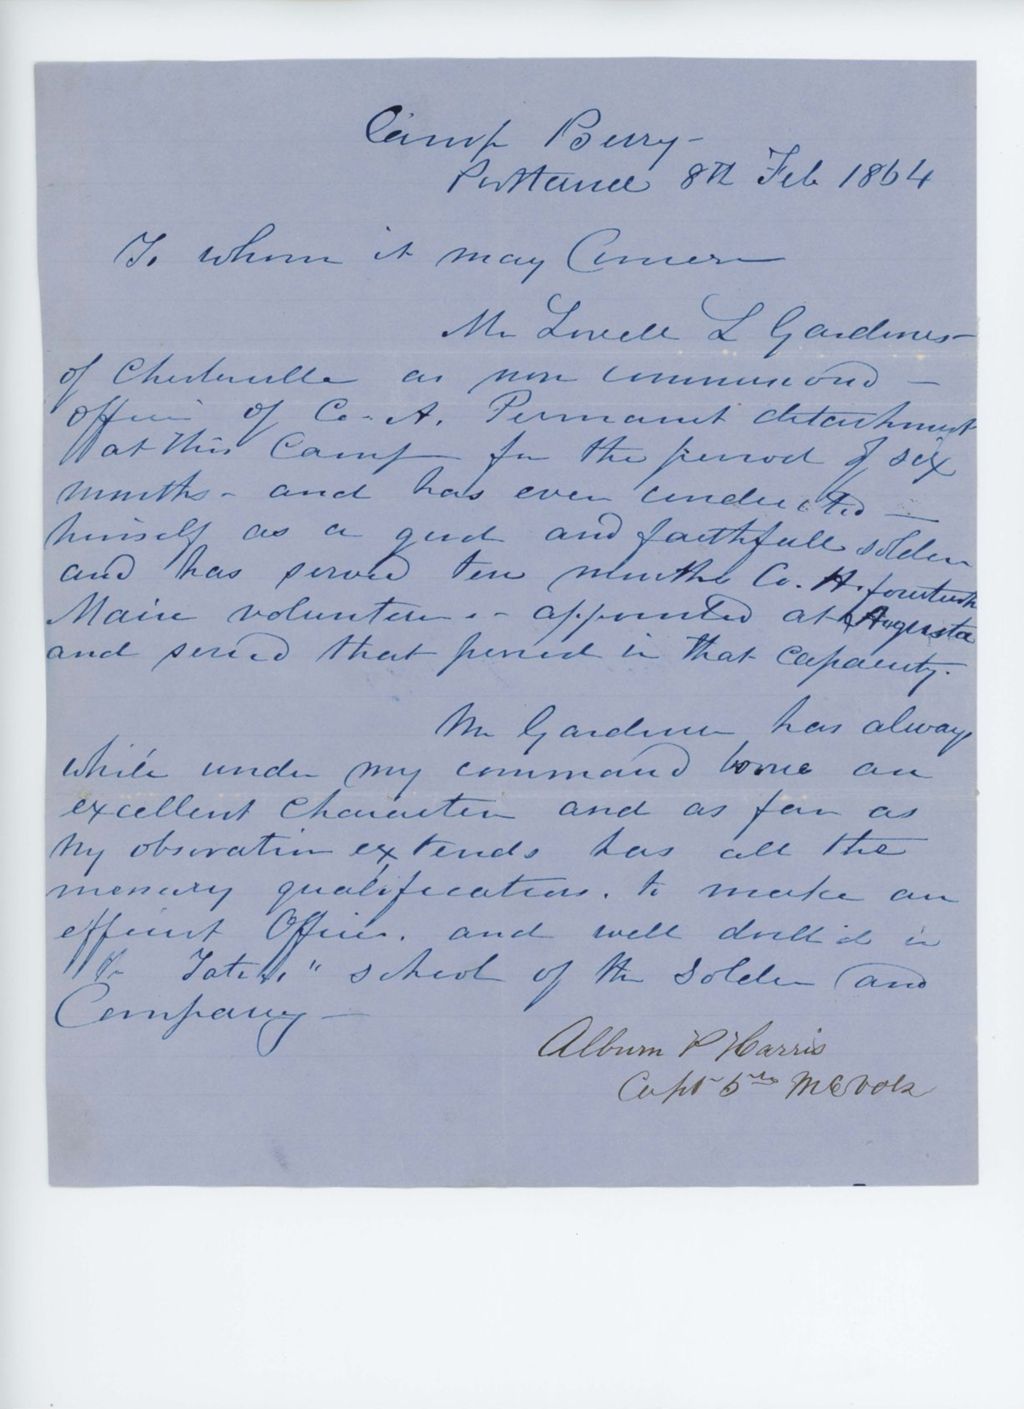 Camp Berry -
Portland 8th Feb 1864
To whom it may Concern
Mr Lowell L Gardiner
of Chesterville as non commissiond -
officer of Co. A. Permanent detachment
at this Camp for the period of six
months - and has ever conducted -
himself as a good and faithfull solder
and has served ten months Co. H. fourteenth
Maine volunteers - appointed at Augusta
and served that period in that capacity.
Mr Gardiner has always
while under my command borne an
excellent Character and as far as
my obsvration extends has all the
qualifications. to make an
efficient Officer. and well drill'd in
school of the Solder and
Company -
Album P Harris
Capt 5th Me Vols